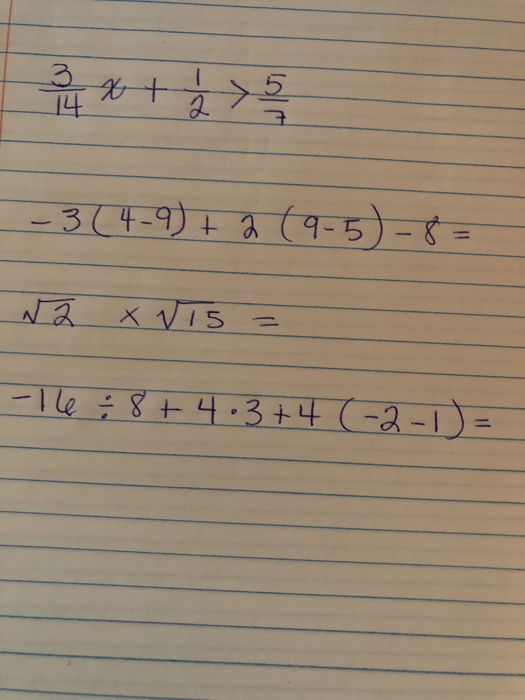 3/14 x + 1/2 > 5/7
-3(4-9) + 2 (9-5) - 8 =
√2 × √15 =
-16 ÷ 8 + 4 · 3 + 4 (-2-1) =